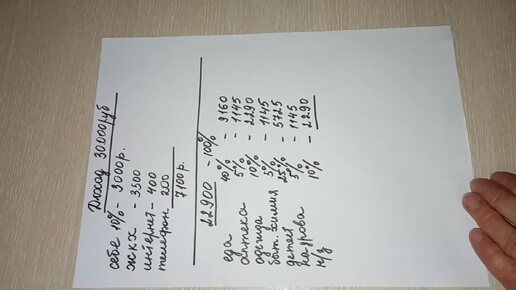 Доход 30.000 руб
себе 10% - 3000р.
жкх - 3500
интернет - 400
телефон - 200
7100р.
22900 - 100%
еда 40% - 9160
аптека 5% - 1145
одежда 10% - 2290
быт. химия 5% - 1145
детей 25% - 5725
на дрова 5% - 1145
н/з 10% - 2290